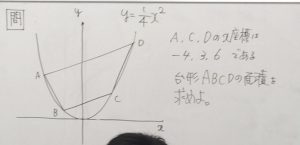 問
y=\frac{1}{4}x^2
y
D
A
C
B
x
A、C、Dのx座標は
-4、3、6 である
台形ABCDの面積を
求めよ。